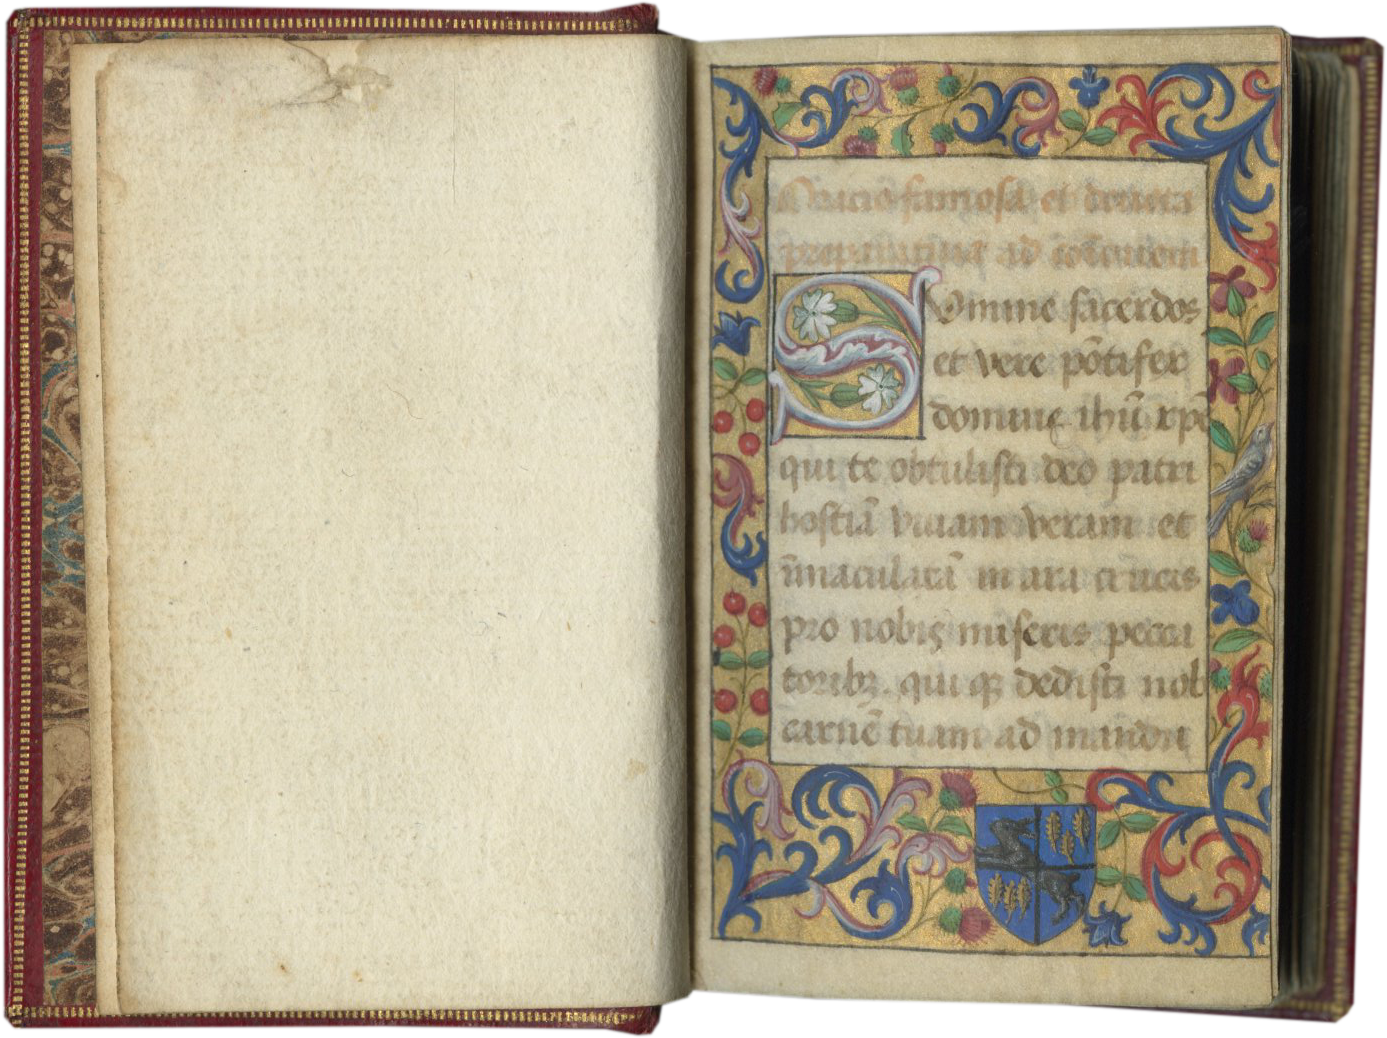 Oracio famosa et deuota
preparatiua ad
Summe sacerdos
et vere põtifex
domine ihũ xpẽ
qui te obtulisti deo patri
hostiã viuam veram et
ĩmaculatã in ara crucis
pro nobis miseris pecca
toribꝫ. qui qꝫ dedisti nob
carnẽ tuam ad mandu